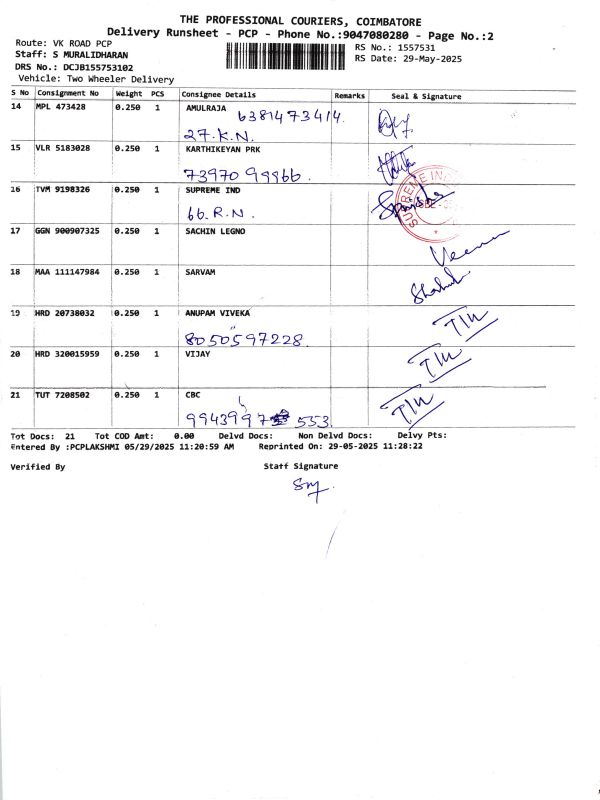 THE PROFESSIONAL COURIERS, COIMBATORE
Delivery Runsheet - PCP - Phone No.:9047080280 - Page No.:2
Route: VK ROAD PCP
Staff: S MURALIDHARAN
DRS No.: DCJB155753102
Vehicle: Two Wheeler Delivery
RS No.: 1557531
RS Date: 29-May-2025
S No Consignment No Weight PCS Consignee Details Remarks Seal & Signature
14 MPL 473428 0.250 1 AMULRAJA
6381473414.
27.K.N.
15 VLR 5183028 0.250 1 KARTHIKEYAN PRK
73970 99866.
16 TVM 9198326 0.250 1 SUPREME IND
66.R.N.
SUPREME IND
17 GGN 900907325 0.250 1 SACHIN LEGNO
18 MAA 111147984 0.250 1 SARVAM
19 HRD 20738032 0.250 1 ANUPAM VIVEKA
8050597228.
20 HRD 320015959 0.250 1 VIJAY
21 TUT 7208502 0.250 1 CBC
Tot Docs: 21 Tot COD Amt: 0.00 Delvd Docs: Non Delvd Docs: Delvy Pts:
Entered By :PCPLAKSHMI 05/29/2025 11:20:59 AM Reprinted On: 29-05-2025 11:28:22
Verified By Staff Signature